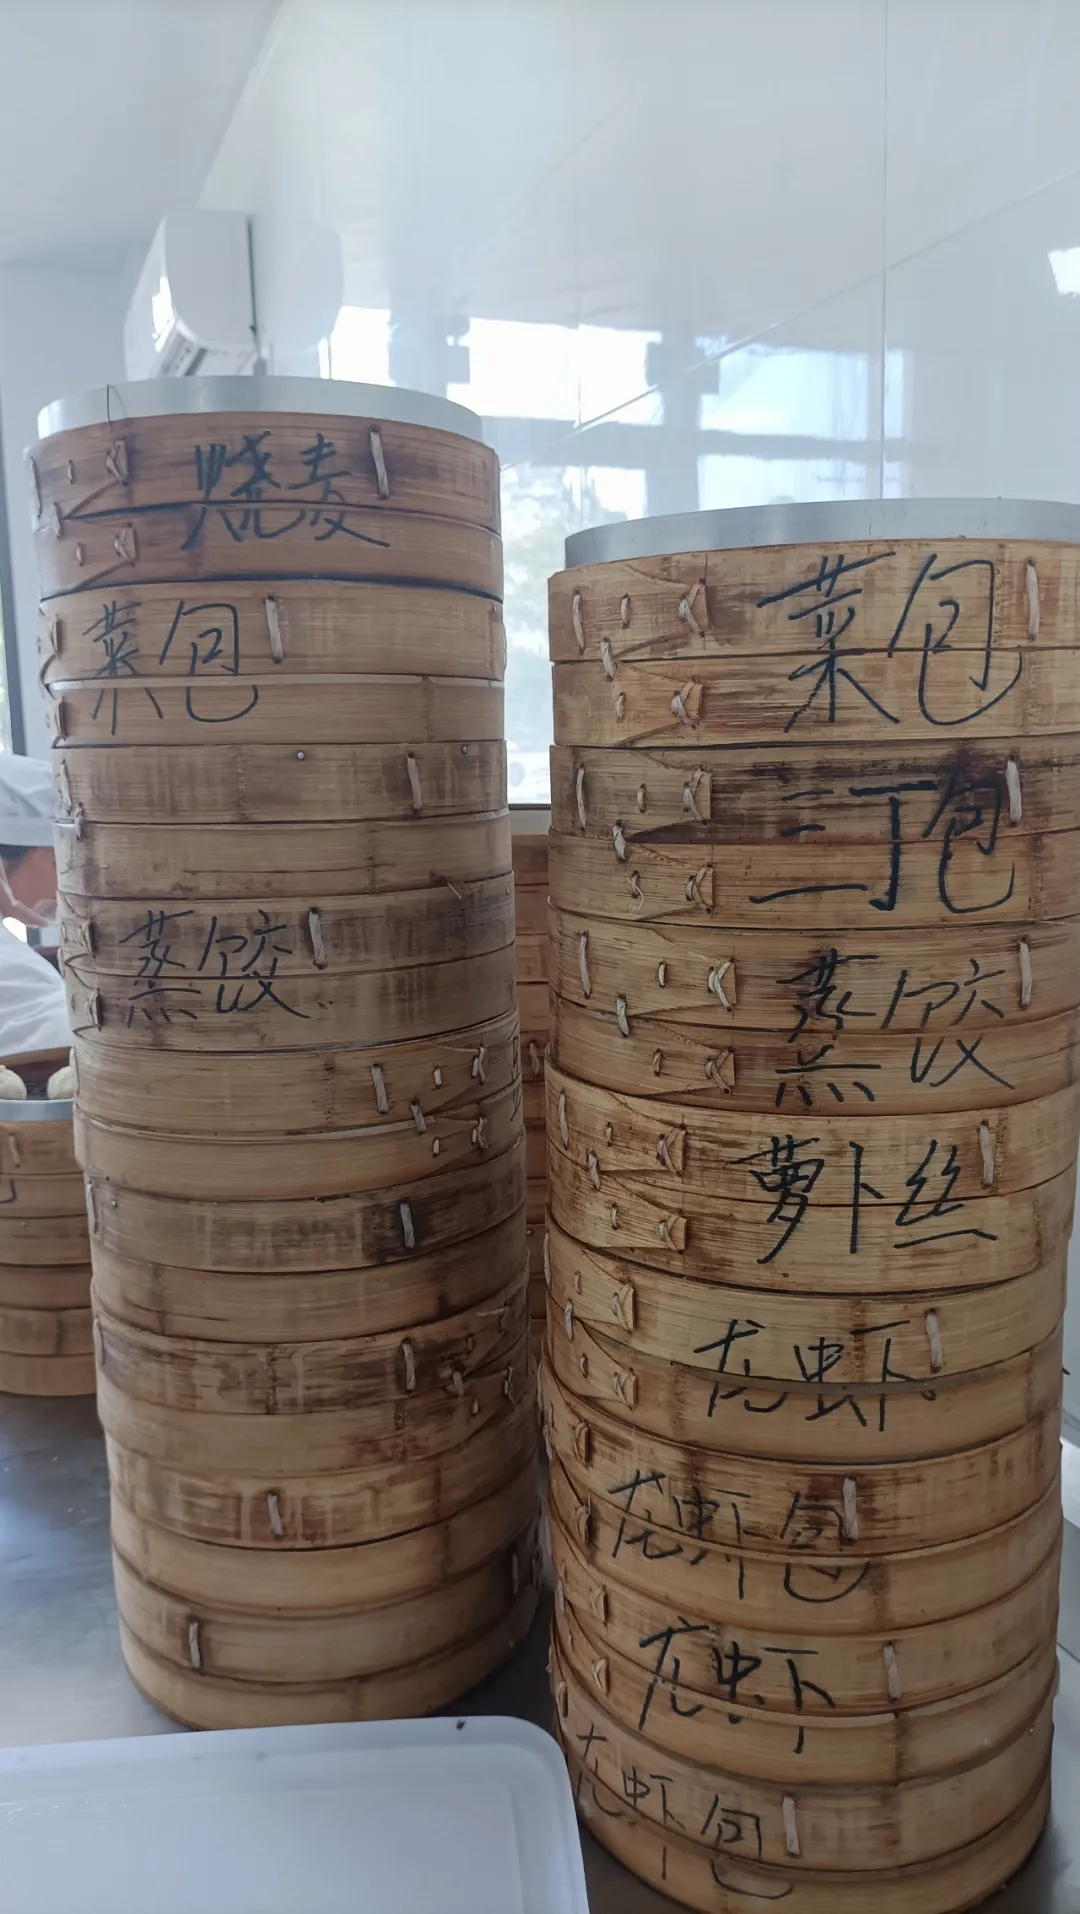 烧麦
菜包
蒸饺
菜包
三丁包
蒸饺
萝卜丝
龙虾
龙虾包
龙虾
龙虾包